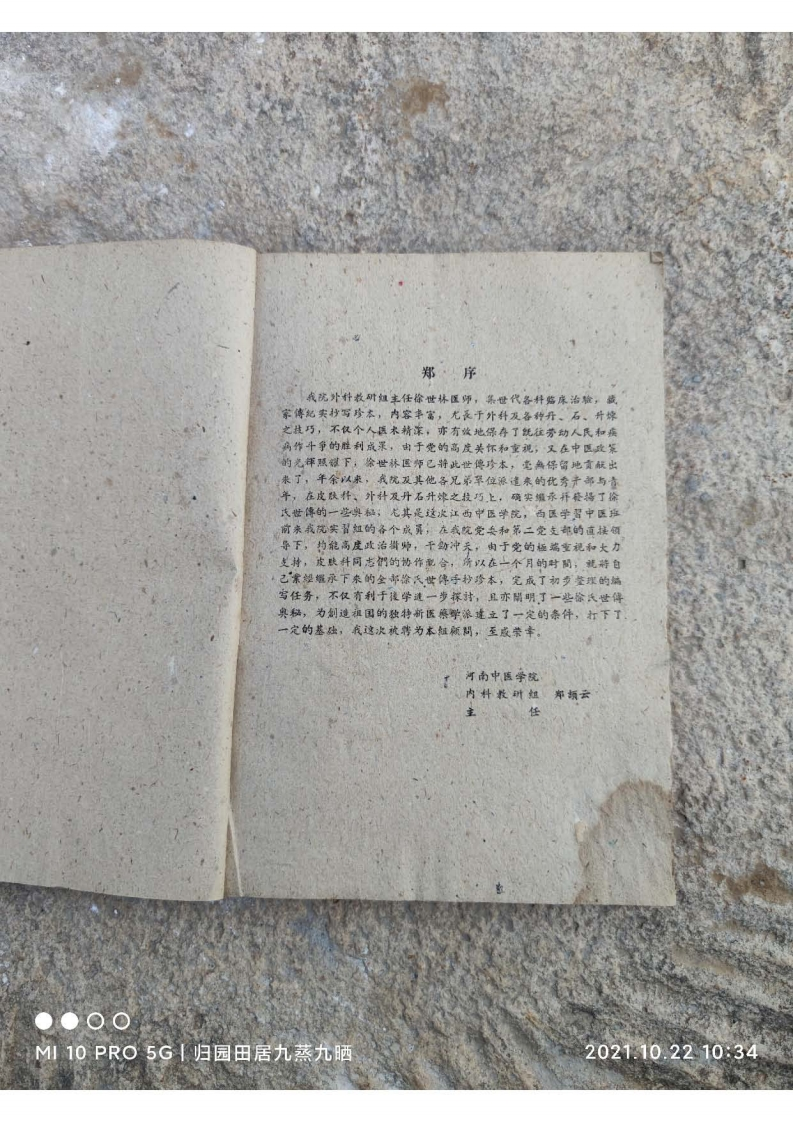 郑 序
我院外科教研組主任徐世林医师，集世代各科临床治驗，藏
家傳紀实抄写珍本，内容丰富，尤长于外科及各种丹、石、升煉
之技巧，不仅个人医术精深，亦有效地保存了既往劳动人民和疾
病作斗爭的胜利成果，由于党的高度关怀和重視，又在中医政策
的光輝照耀下，徐世林医师已将此世傳珍本，毫無保留地貢献出
来了，年余以来，我院及其他各兄弟单位派遣来的优秀干部与青
年，在皮肤科、外科及丹石升煉之技巧上，确实继承幷發揚了徐
氏世傳的一些奥秘，尤其是这次江西中医学院，西医学習中医班
前来我院实習組的各个成員，在我院党委和第二党支部的直接领
导下，均能高度政治掛帅，干勁冲天，由于党的極端重視和大力
支持，皮肤科同志們的协作配合，所以在一个月的时間，就将自
己業經継承下来的全部徐氏世傳手抄珍本，完成了初步整理的編
写任务，不仅有利于後学进一步探討，且亦闡明了一些徐氏世傳
奥秘，为創造祖国的独特新医藥学派建立了一定的条件，打下了
一定的基础，我这次被聘为本組顧問，至感荣幸。
河南中医学院
内科教研組 郑頡云
主 任
MI 10 PRO 5G | 归园田居九蒸九晒
2021.10.22 10:34